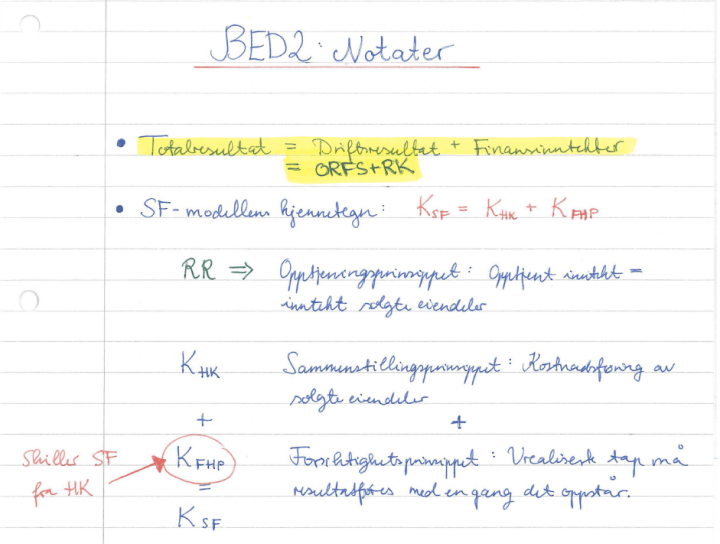 BED2: Notater
• Totalresultat = Driftsresultat + Finansinntekter
= ORFS+RK
• SF-modellens kjennetegn: K_SF = K_HK + K_FHP
RR ⇒ Opptjeningsprinsippet: Opptjent inntekt =
inntekt solgte eiendeler
K_HK Sammenstillingsprinsippet: Kostnadsføring av
solgte eiendeler
+ +
Skiller SF K_FHP Forsiktighetsprinsippet: Urealisert tap må
fra HK = resultatføres med en gang det oppstår.
K_SF